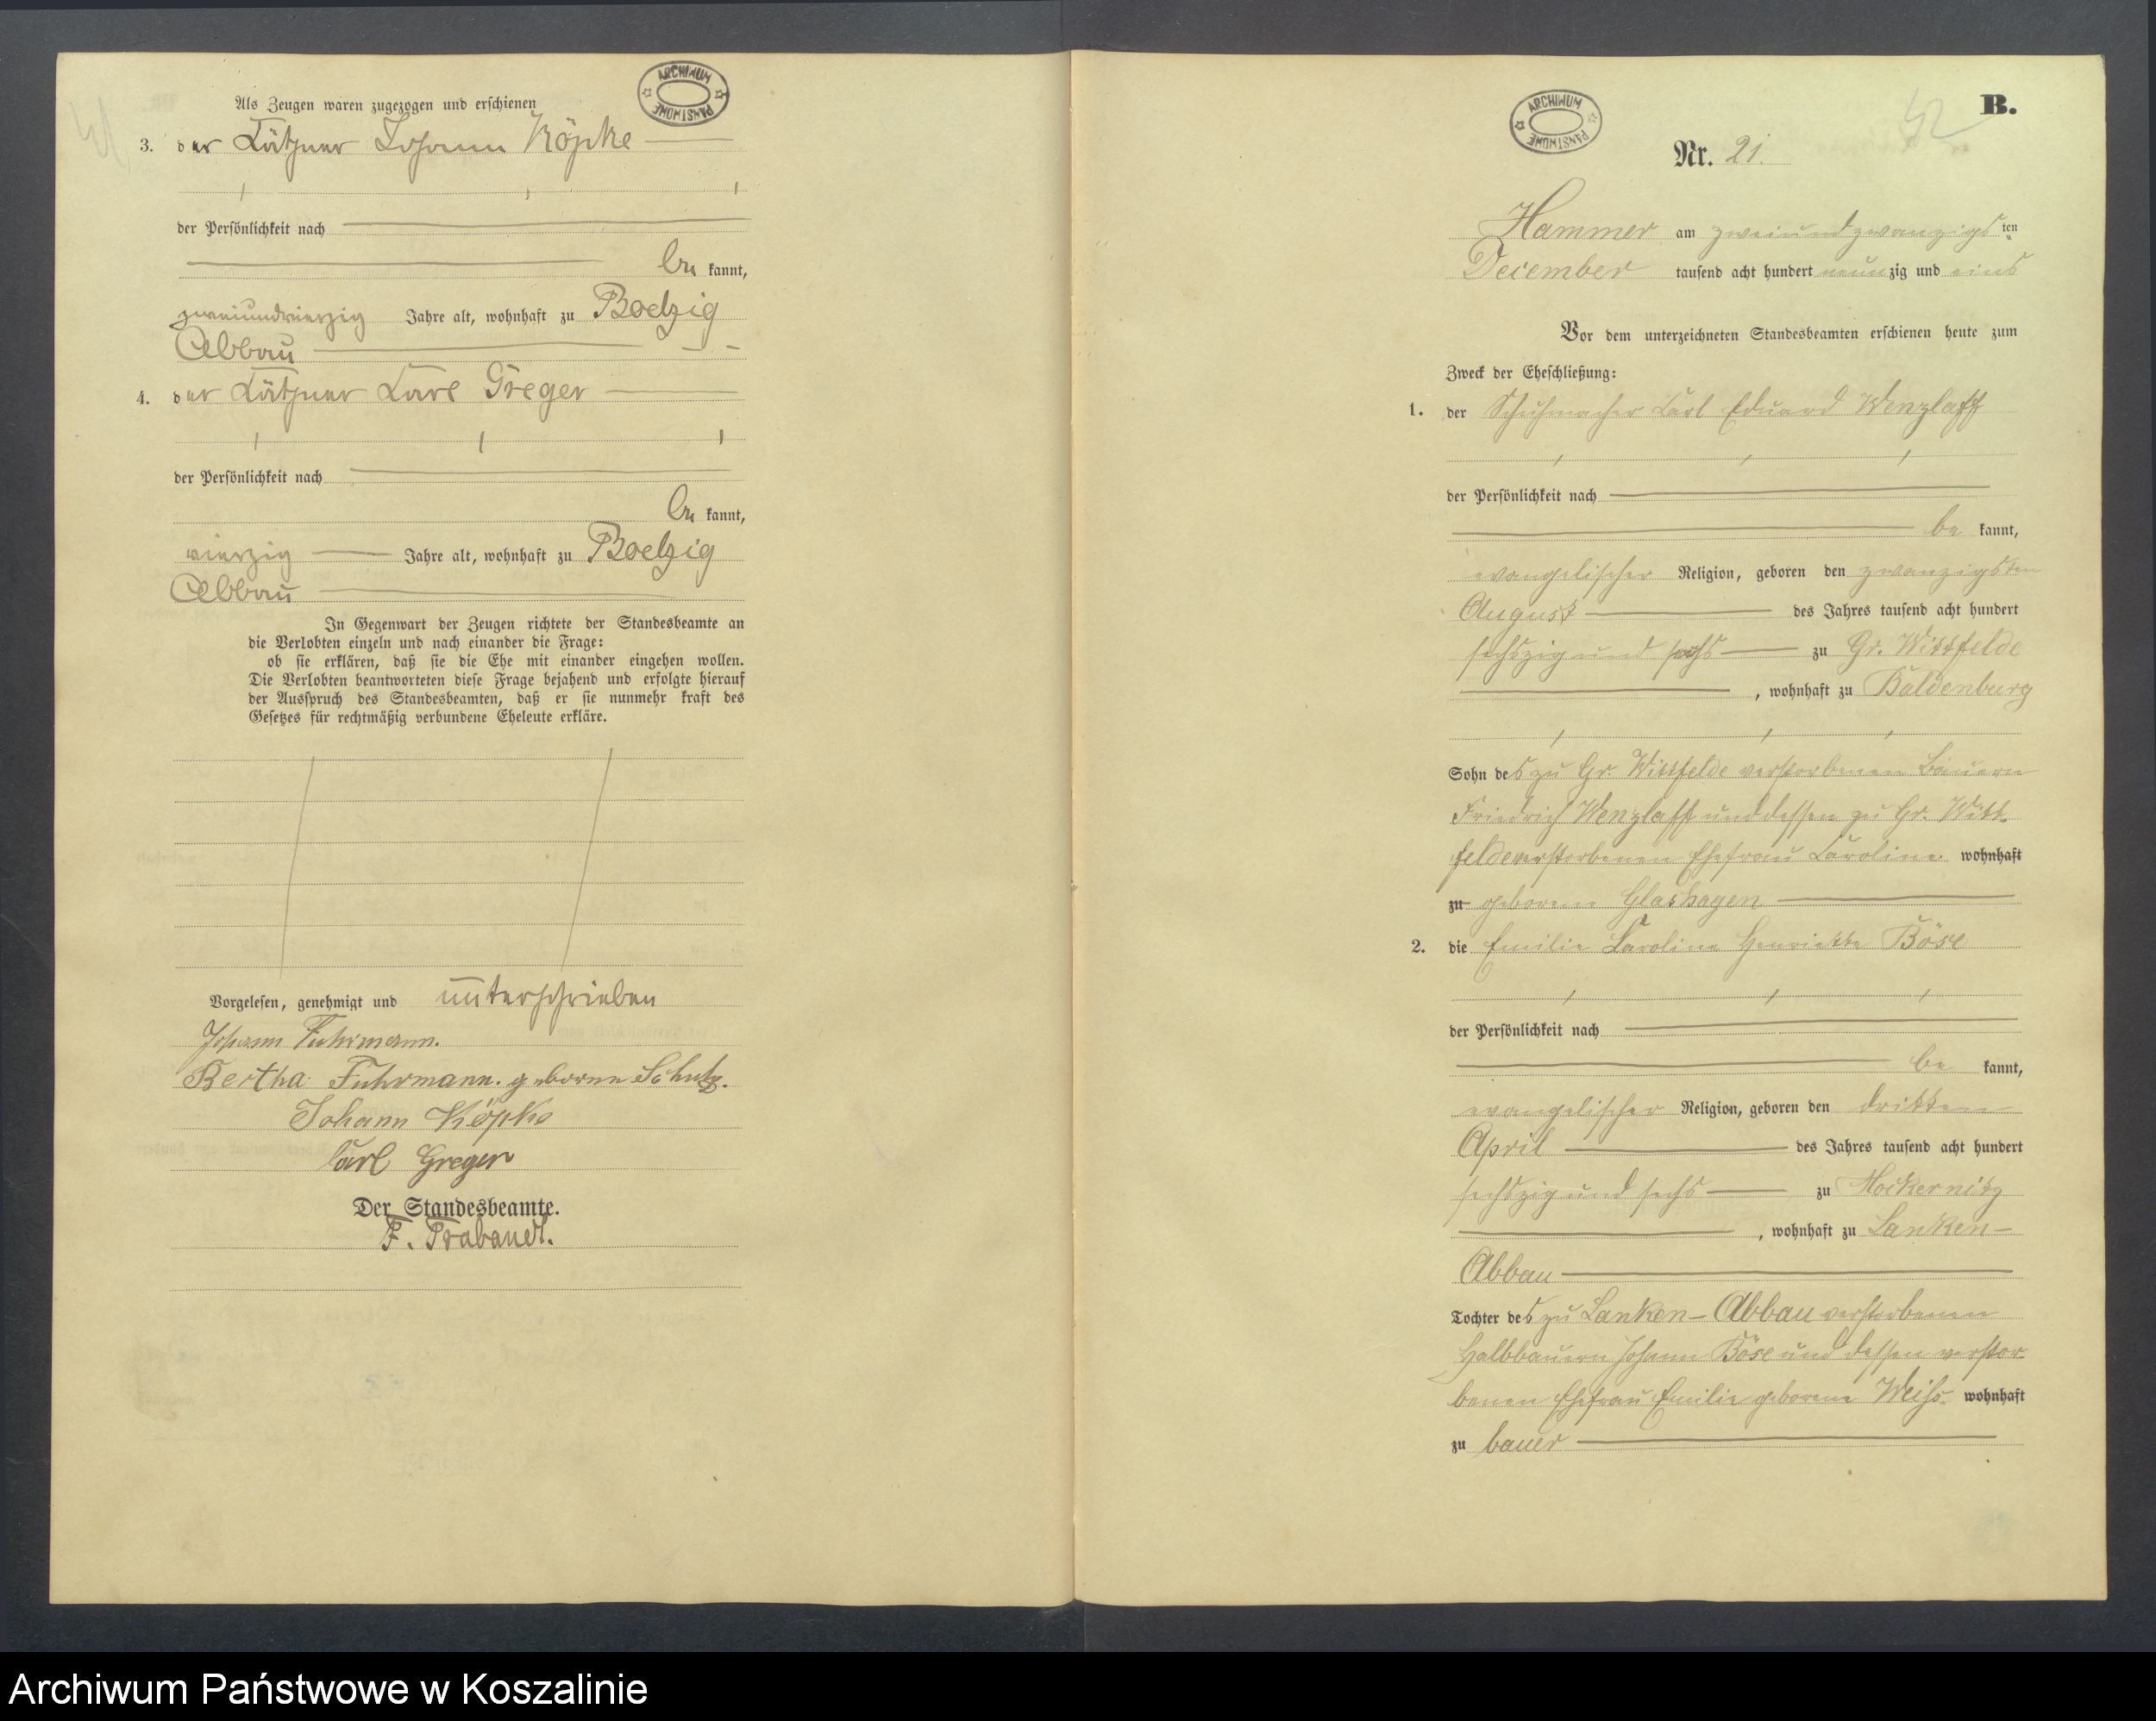 Als Zeugen waren zugezogen und erschienen
ARCHIWUM PAŃSTWOWE
3. der Kätzner Johann Köpke
der Persönlichkeit nach
be kannt,
zweiundvierzig Jahre alt, wohnhaft zu Boelzig
Abbau
4. der Kätzner Karl Greger
der Persönlichkeit nach
be kannt,
vierzig Jahre alt, wohnhaft zu Boelzig
Abbau
In Gegenwart der Zeugen richtete der Standesbeamte an
die Verlobten einzeln und nach einander die Frage:
ob sie erklären, daß sie die Ehe mit einander eingehen wollen.
Die Verlobten beantworteten diese Frage bejahend und erfolgte hierauf
der Ausspruch des Standesbeamten, daß er sie nunmehr kraft des
Gesetzes für rechtmäßig verbundene Eheleute erkläre.
Vorgelesen, genehmigt und unterschrieben
Johann Fuhrmann.
Bertha Fuhrmann. geborne Schulz.
Johann Köpke
Carl Greger
Der Standesbeamte.
F. Trabandt.
B.
ARCHIWUM PAŃSTWOWE
Nr. 21.
Hammer am zweiundzwanzigs ten
December tausend acht hundert neunzig und eins
Vor dem unterzeichneten Standesbeamten erschienen heute zum
Zweck der Eheschließung:
1. der Schuhmacher Carl Eduard Wenzlaff
der Persönlichkeit nach
be kannt,
evangelischer Religion, geboren den zwanzigsten
August des Jahres tausend acht hundert
sechszig und sechs zu Gr. Wittfelde
, wohnhaft zu Baldenburg
Sohn des zu Gr. Wittfelde verstorbenen Bauern
Friedrich Wenzlaff und dessen zu Gr. Witt-
felde verstorbenen Ehefrau Caroline wohnhaft
zu geborene Glashagen
2. die Emilie Karoline Henriette Böse
der Persönlichkeit nach
be kannt,
evangelischer Religion, geboren den dritten
April des Jahres tausend acht hundert
sechszig und sechs zu Mockernitz
, wohnhaft zu Lanken-
Abbau
Tochter des zu Lanken-Abbau verstorbenen
Halbbauern Johann Böse und dessen verstor-
benen Ehefrau Emilie geborene Weiß- wohnhaft
zu bauer
Archiwum Państwowe w Koszalinie